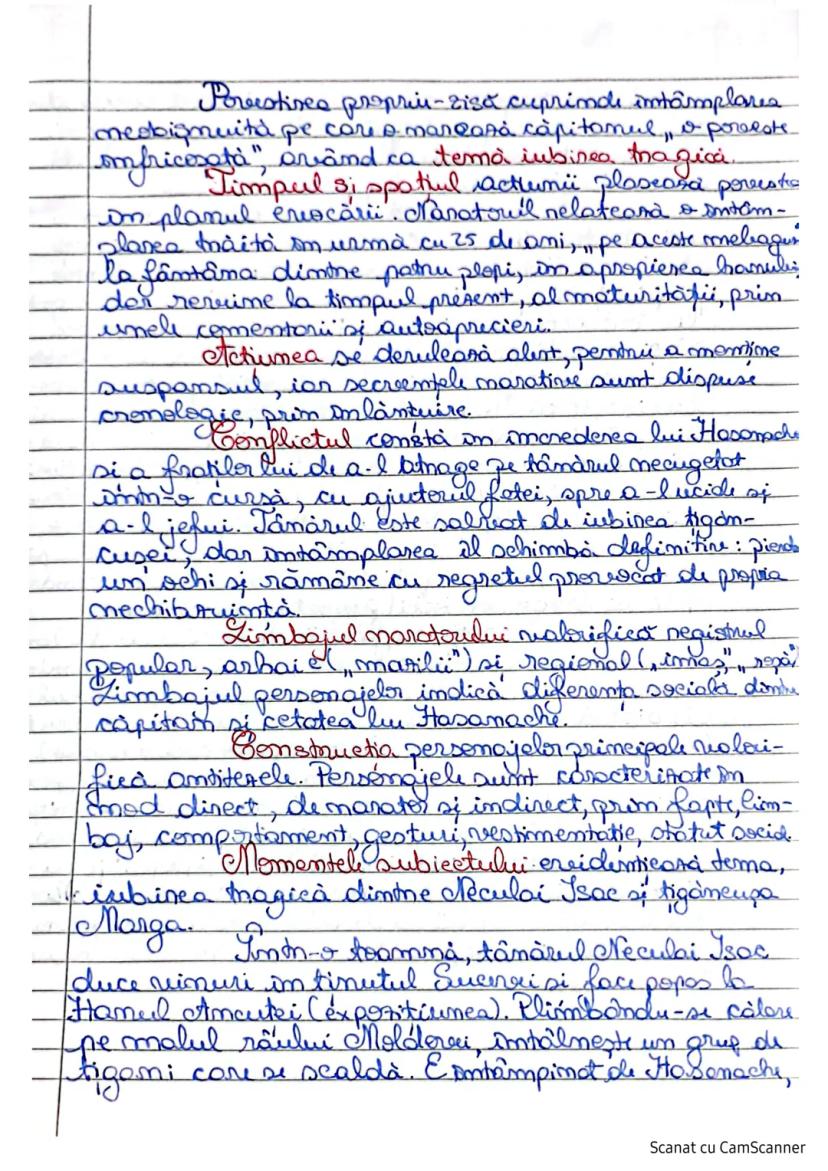 Povestirea propriu-zisă cuprinde întâmplarea
neobișnuită pe care o narează căpitanul „o poveste
înfricoșată", având ca temă iubirea tragică.
Timpul si spațiul acțiunii plasează poveste
în planul evocării. Naratorul relatează o întâm-
plarea trăită în urmă cu 25 de ani, „pe aceste meleaguri
la fântâna dintre patru plopi, în apropierea hanului,
dar revine la timpul prezent, al maturității, prin
unele comentarii și autoaprecieri.
Acțiunea se derulează alert, pentru a menține
suspansul, iar secvențele narative sunt dispuse
cronologic, prin înlănțuire.
Conflictul constă în încrederea lui Hasanache
si a fraților lui de a-l atrage pe tânărul necugetat
într-o cursă, cu ajutorul fetei, spre a-l ucide și
a-l jefui. Tânărul este salvat de iubirea țigăn-
cusei, dar întâmplarea îl schimbă definitiv: pierde
un ochi și rămâne cu regretul provocat de propria
nechibzuință.
Limbajul naratorului valorifică registrul
popular, arhaic („mazilii") si regional („imaș",
Limbajul personajelor indică diferența socială dintre
căpitan și cetatea lui Hasanache.
Construcția personajelor principale valori-
fică antitezele. Personajele sunt caracterizate în
mod direct, de narator și indirect, prin fapte, lim-
baj, comportament, gesturi, vestimentație, statut social
Momentele subiectului evidențiează tema,
iubirea tragică dintre Neculai Isac și țigăncușa
Marga.
Într-o toamnă, tânărul Neculai Isac
duce vinuri în ținutul Sucevei si face popas la
Hanul Ancuței (expozițiunea). Plimbându-se călare
pe malul râului Moldovei, întâlnește un grup de
țigani care se scaldă. E întâmpinat de Hasanache,
Scanat cu CamScanner